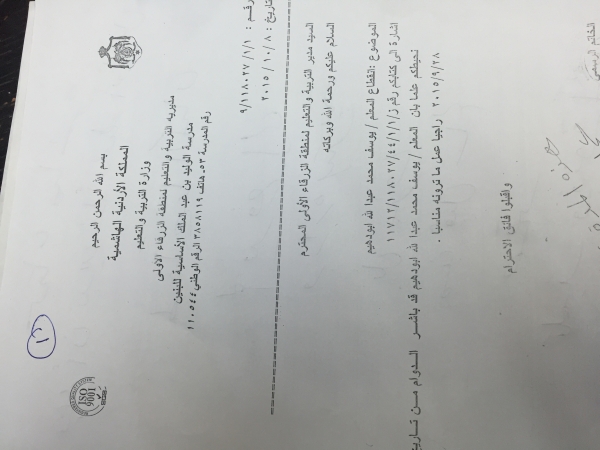 بسم الله الرحمن الرحيم
المملكة الأردنية الهاشمية
وزارة التربية والتعليم
مديرية التربية والتعليم لمنطقة الزرقاء الاولى
مدرسة الوليد بن عبد الملك الأساسية للبنين
رقم المدرسة ٥٣ هاتف ٣٨٥٨١١٩ الرقم الوطني ١١٠٥٤٤
١٦
ISO
9001
رقم : ٩/١١٨٠٢٧/١/١
تاريخ : ٢٠١٥/١٠/٨
السيد مدير التربية والتعليم لمنطقة الزرقاء الأولى المحترم
السلام عليكم ورحمة الله وبركاته
الموضوع :انقطاع المعلم / يوسف محمد عبدا لله ابودهيم
اشارة الى كتابكم رقم ز/١/١/٤٤/١١٨٠٢٧/١١٧١٢
نحيطكم علما بان المعلم / يوسف محمد عبدا لله ابودهيم قد باشر الدوام من تاريخ
٢٠١٥/٩/٢٨ راجيا عمل ما ترونه مناسبا .
واقبلوا فائق الاحترام
الخاتم الرسمي